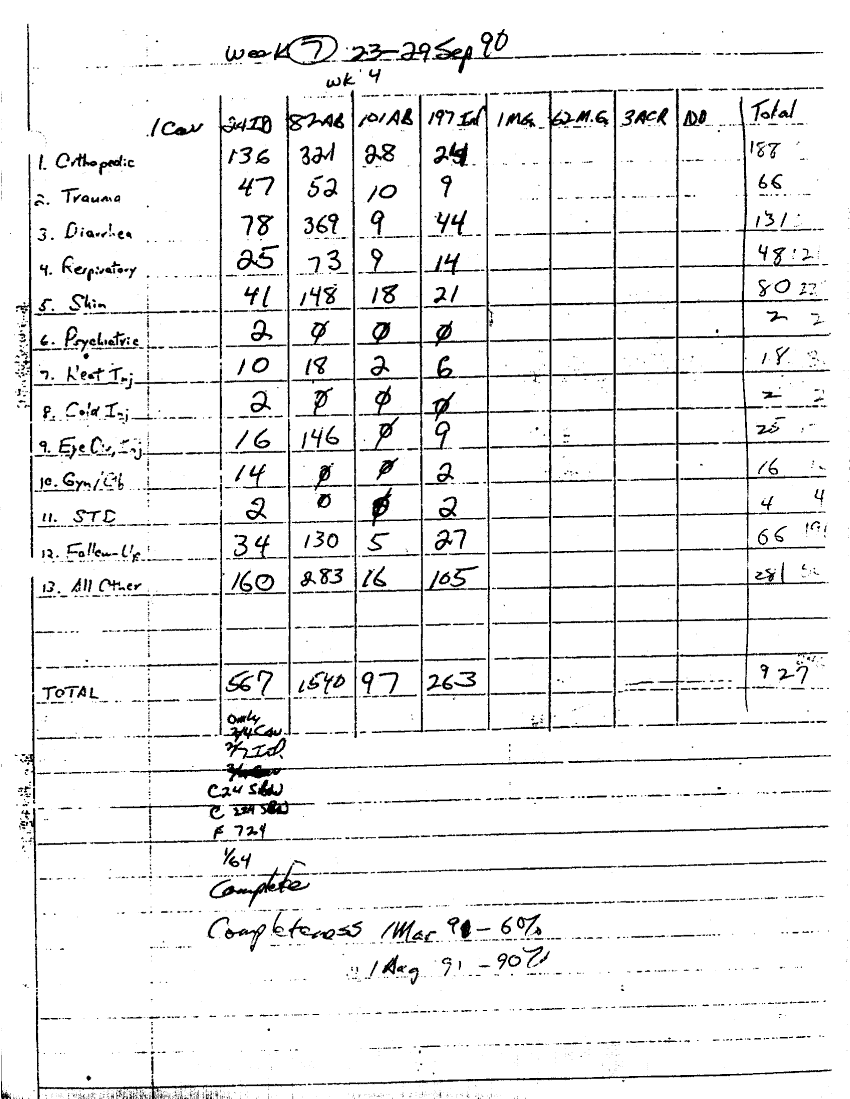 Week 7 23-29 Sep 90
wk 4
1 Cav 24 ID 82 AB 101 AB 197 Inf 1 MG. 62 M.G. 3 ACR 1DD Total
1. Orthopedic 136 321 28 24 188
2. Trauma 47 52 10 9 66
3. Diarrhea 78 369 9 44 131
4. Respiratory 25 73 9 14 48
5. Skin 41 148 18 21 80
6. Psychiatric 2 0 0 0 2 2
7. Heat Inj 10 18 2 6 18
8. Cold Inj 2 0 0 0 2 2
9. Eye Inj 16 146 0 9 25
10. Gyn/Ob 14 0 0 2 16
11. STD 2 0 0 2 4 4
12. Follow-Up 34 130 5 27 66 191
13. All Other 160 283 16 105 281
TOTAL 567 1540 97 263 927
Only
2/4 Cav
2/7 Inf.
C 24 Sbn
C 224 Sbn
F 724
1/64
Complete
Completeness 1 Mar 91 - 60%
" 1 Aug 91 - 90%